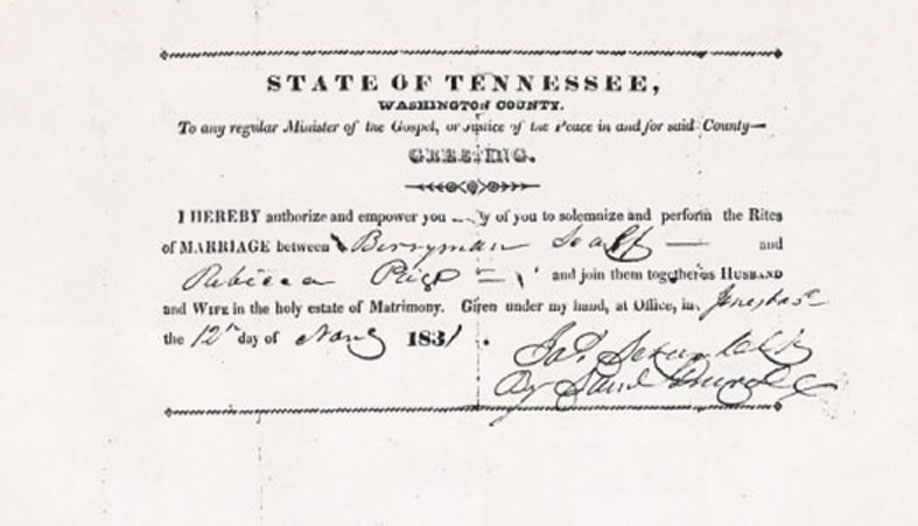 STATE OF TENNESSEE,
WASHINGTON COUNTY.
To any regular Minister of the Gospel, or Justice of the Peace in and for said County—
GREETING.
I HEREBY authorize and empower you of you to solemnize and perform the Rites
of MARRIAGE between Berryman and
Rebecca and join them together as HUSBAND
and WIFE in the holy estate of Matrimony. Given under my hand, at Office, in
the 12th day of 1831.